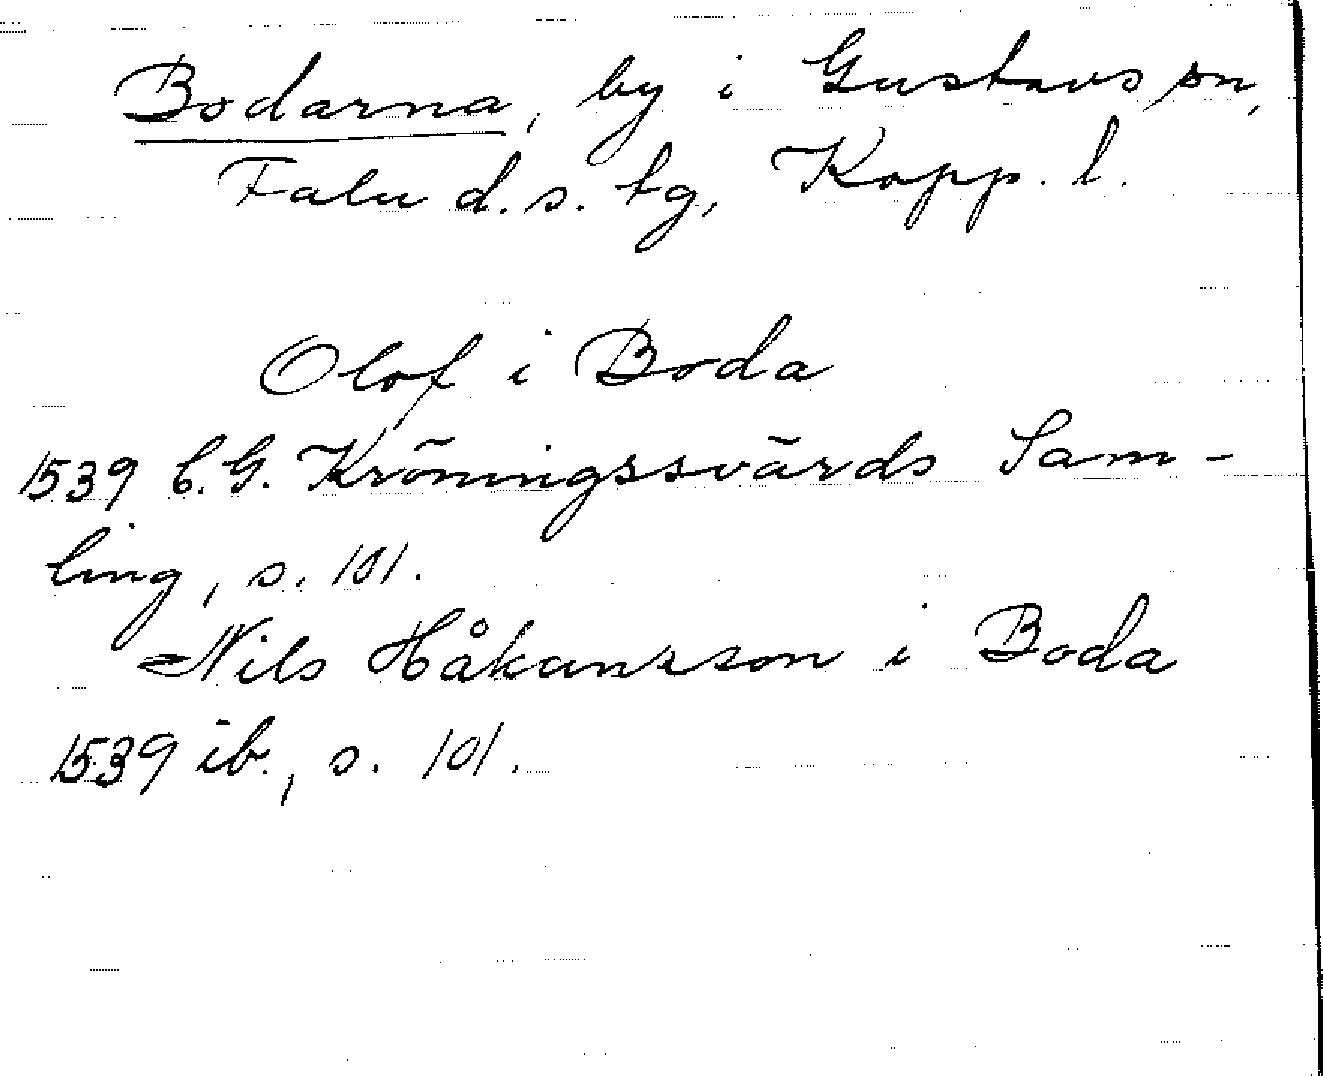 Bodarna, by i Gustavs sn,
Falu d. s. tg, Kopp. l.
Olof i Boda
1539 C. G. Kröningssvärds Sam-
ling, s. 101.
Nils Håkansson i Boda
1539 ib., s. 101.